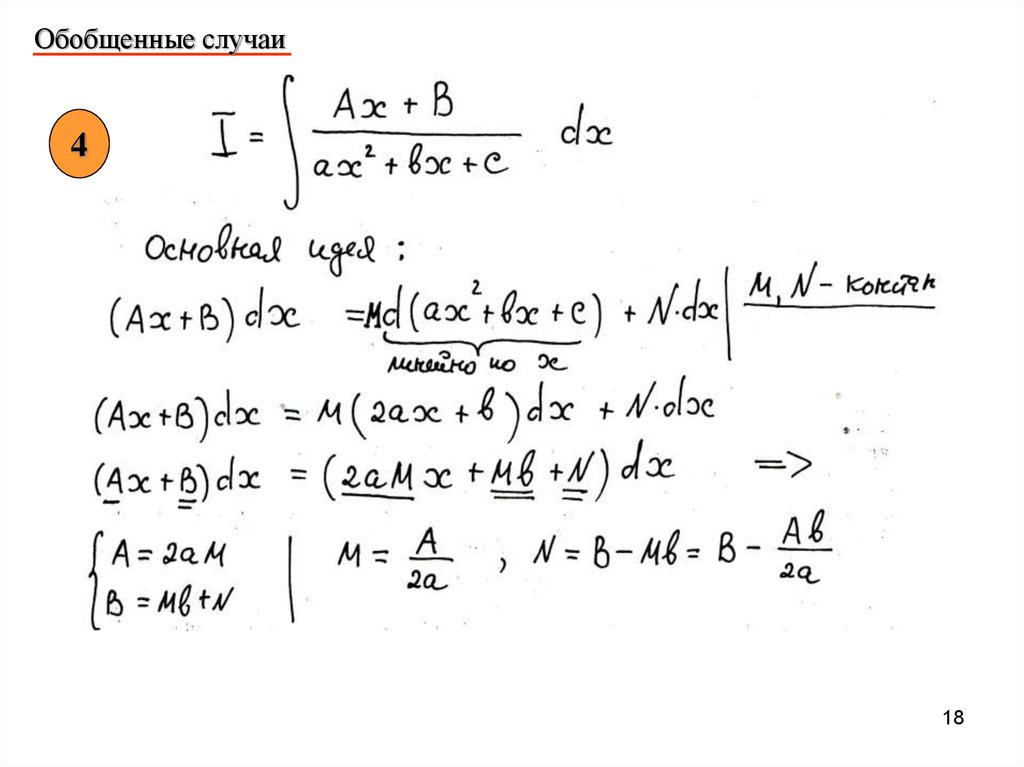 Обобщенные случаи
4
I = ∫ (Ax + B) / (ax² + вx + c) dx
Основная идея :
(Ax + B) dx = Md (ax² + вx + c) + N·dx | M, N – констан
линейно по x
(Ax + B) dx = M (2ax + в) dx + N·dx
(Ax + B) dx = (2aM x + Mв + N) dx =>
{ A = 2aM | M = A / 2a , N = B – Mв = B – Aв / 2a
{ B = Mв + N
18